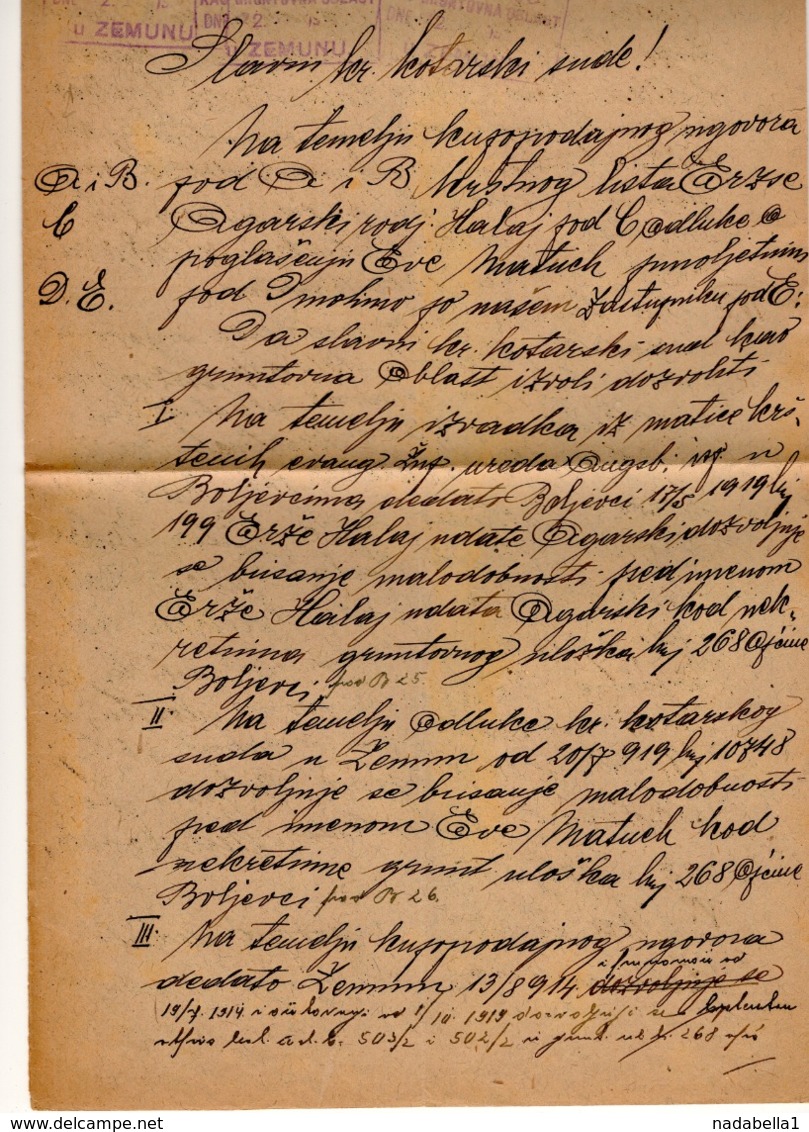 KAO GRUNTOVNA OBLAST
DNE 2.
U ZEMUNU
DNE 2. 15
U ZEMUNU
GRUNTOVNA OBLAST
DNE 2.
U ZEMUNU
Slavni kr. kotarski sude!
Na temelju kupoprodajnog ugovora
A i B. pod A i B krstnog lista Erzse
C Agarski rodj. Halaj pod C Odluke o
poglašenju Eve Matuch punoljetnim
D. E. pod D molimo po našem Zastupniku pod E:
Da slavni kr. kotarski sud kao
gruntovna oblast izvoli dozvoliti
I Na temelju izvadka iz matice krš-
tenih evang. žup. ureda Augsb. isp. u
Boljevcima dedato Boljevci 17/5 1919 br
199 Erže Halaj udate Agarski dozvoljuje
se brisanje malodobnosti pred imenom
Erže Halaj udata Agarski kod nek-
retnina gruntovnog uloška br 268 Općine
Boljevci pod B 25.
II Na temelju Odluke kr. kotarskog
suda u Zemun od 20/7 919 br 10748
dozvoljuje se brisanje malodobnosti
pred imenom Eve Matuch kod
nekretnine grunt uloška br 268 Općine
Boljevci pod B 26.
III Na temelju kupoprodajnog ugovora
dedato Zemun 13/8 914. dozvoljuje se
19/7. 1914 i od 1/10. 1919 dozvoljuje se
503/2 i 502/2 u grunt. ul. br. 268
www.delcampe.net
nadabella1